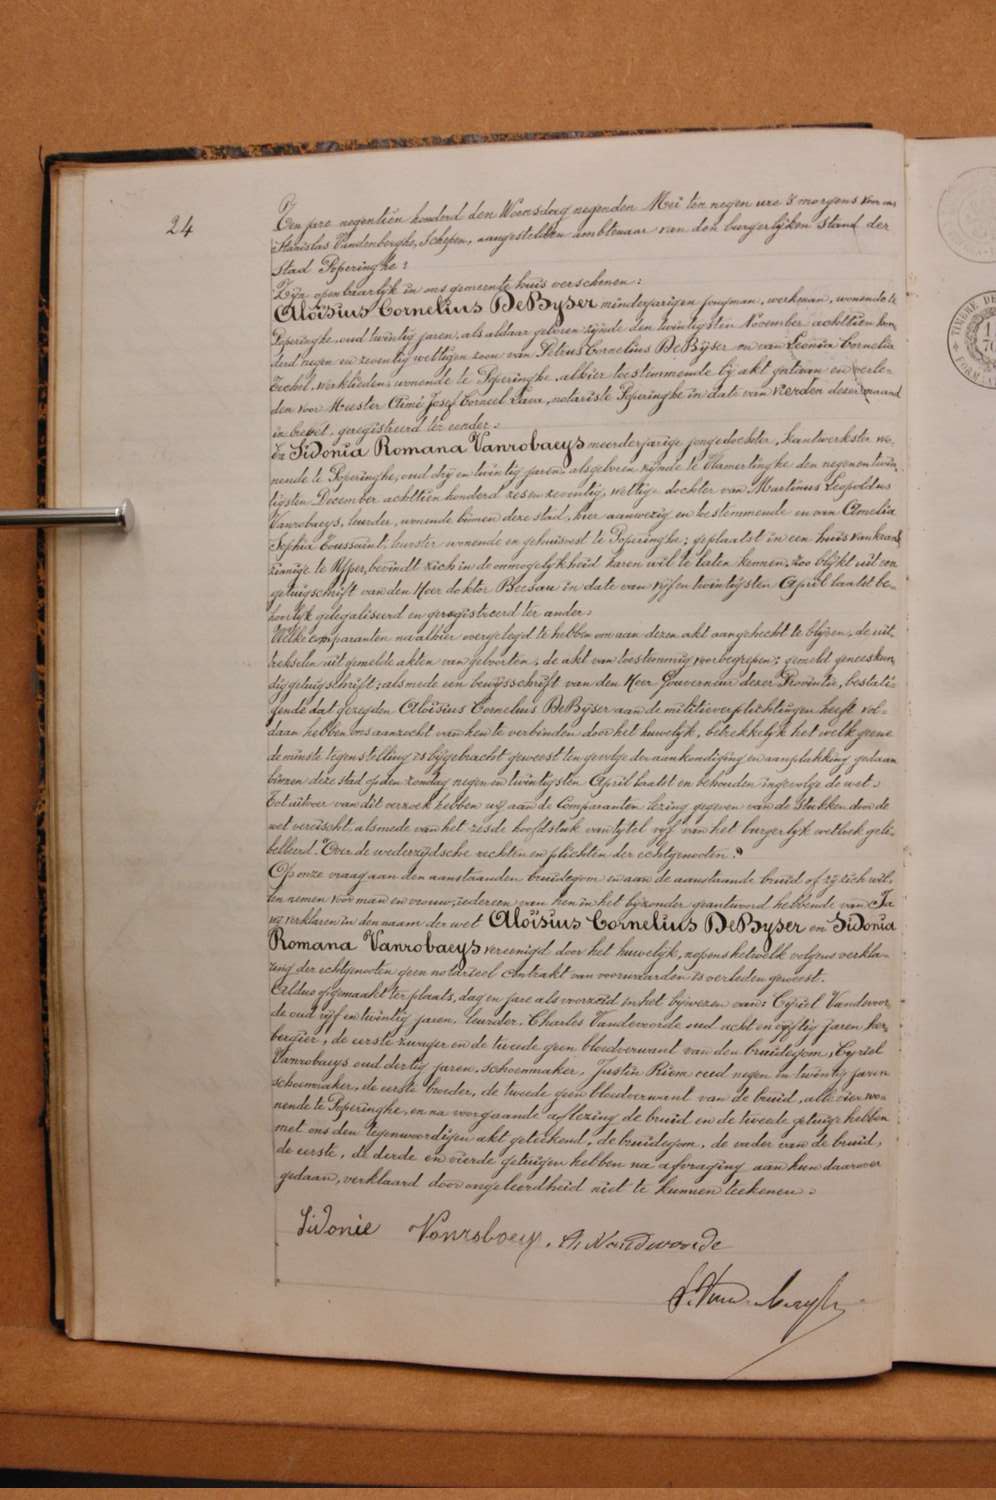 24
Ten jare negentien honderd den Woensdag negenden Mei ten negen ure 's morgens voor ons
Stanislas Vandenberghe, Schepen, aangestelden ambtenaar van den burgerlijken stand der
stad Poperinghe:
Zijn openbaarlijk in ons gemeentehuis verschenen:
Aloïsius Cornelius DeByser minderjarigen jongman, werkman, wonende te
Poperinghe, oud twintig jaren, als aldaar geboren zijnde den twintigsten November achttien hon-
derd negen en zeventig wettigen zoon van Petrus Cornelius DeByser en van Leonia Cornelia
werklieden, wonende te Poperinghe, alhier toestemmende bij akt gegeven en verle-
den voor Meester Aimé Josef Corneel Lava, notaris te Poperinghe in date van vierden dezer maand
in brevet, geregistreerd ter eender.
En Sidonia Romana Vanrobaeys meerderjarige jongedochter, kantwerkster wo-
nende te Poperinghe, oud drij en twintig jaren, als geboren zijnde te Vlamertinghe den negenentwin-
tigsten December achttien honderd zes en zeventig, wettige dochter van Martinus Leopoldus
Vanrobaeys, leurder, wonende binnen deze stad, hier aanwezig en toestemmende en van Amelia
Sophia Toussaint, leurster wonende en gehuisvest te Poperinghe; geplaatst in een huis van krank-
zinnige te Ypper, bevindt zich in de onmogelijkheid haren wil te laten kennen, zoo blijkt uit een
getuigschrift van den Heer doktor Beesau in date van vijf en twintigsten April laatst be-
hoorlijk gelegaliseerd en geregistreerd ter ander.
Welke comparanten na alhier overgelegd te hebben om aan dezen akt aangehecht te blijven, de uit-
treksels uit gemelde akten van geboorten, de akt van toestemmig voorbegrepen; gemeld geneeskun-
dig getuigschrift; alsmede een bewijsschrift van den Heer Gouverneur dezer Provintie, bestati-
gende dat gezegden Aloïsius Cornelius DeByser aan de militieverplichtingen heeft vol-
daan hebben ons aanzocht van hen te verbinden door het huwelijk, betrekkelijk het welk geene
de minste tegenstelling is bijgebracht geweest ten gevolge der aankondiging en aanplakking gedaan
binnen deze stad op den zondag negen en twintigsten April laatst en behouden ingevolge de wet.
Tot uitvoer van dit verzoek hebben wij aan de Comparanten lezing gegeven van de stukken door de
wet vereischt, alsmede van het zesde hoofdstuk van tytel vijf van het burgerlijk wetboek geli-
belleerd. "Over de wederzijdsche rechten en plichten der echtgenooten."
Op onze vraag aan den aanstaanden bruidegom en aan de aanstaande bruid of zij zich wil-
len nemen voor man en vrouw, iedereen van hen in het bijzonder geantwoord hebbende van Ja
wij verklaren in den naam der wet Aloïsius Cornelius DeByser en Sidonia
Romana Vanrobaeys vereenigd door het huwelijk, nopens hetwelk volgens verkla-
ring der echtgenooten geen notarieel contrakt van voorwaarden is verleden geweest.
Aldus opgemaakt ter plaats, dag en jare als voorzeid in het bijwezen van: Cyriel Vandevoor-
de oud vijf en twintig jaren, leurder, Charles Vandevoorde oud acht en vijftig jaren her-
bergier, de eerste zwager en de tweede geen bloedverwant van den bruidegom, Cyriel
Vanrobaeys oud dertig jaren, schoenmaker, Justin Riem oud negen en twintig jaren
schoenmaker, de eerste broeder, de tweede geen bloedverwant van de bruid, alle vier wo-
nende te Poperinghe, en na voorgaande aflezing de bruid en de tweede getuige hebben
met ons den tegenwoordigen akt geteekend, de bruidegom, de vader van de bruid,
de eerste, de derde en vierde getuigen hebben na afvraging aan hun daarover
gedaan, verklaard door ongeleerdheid niet te kunnen teekenen.
Sidonie Vanrobaeys. Ch Vandevoorde
TIMBRE DE
FORMAT